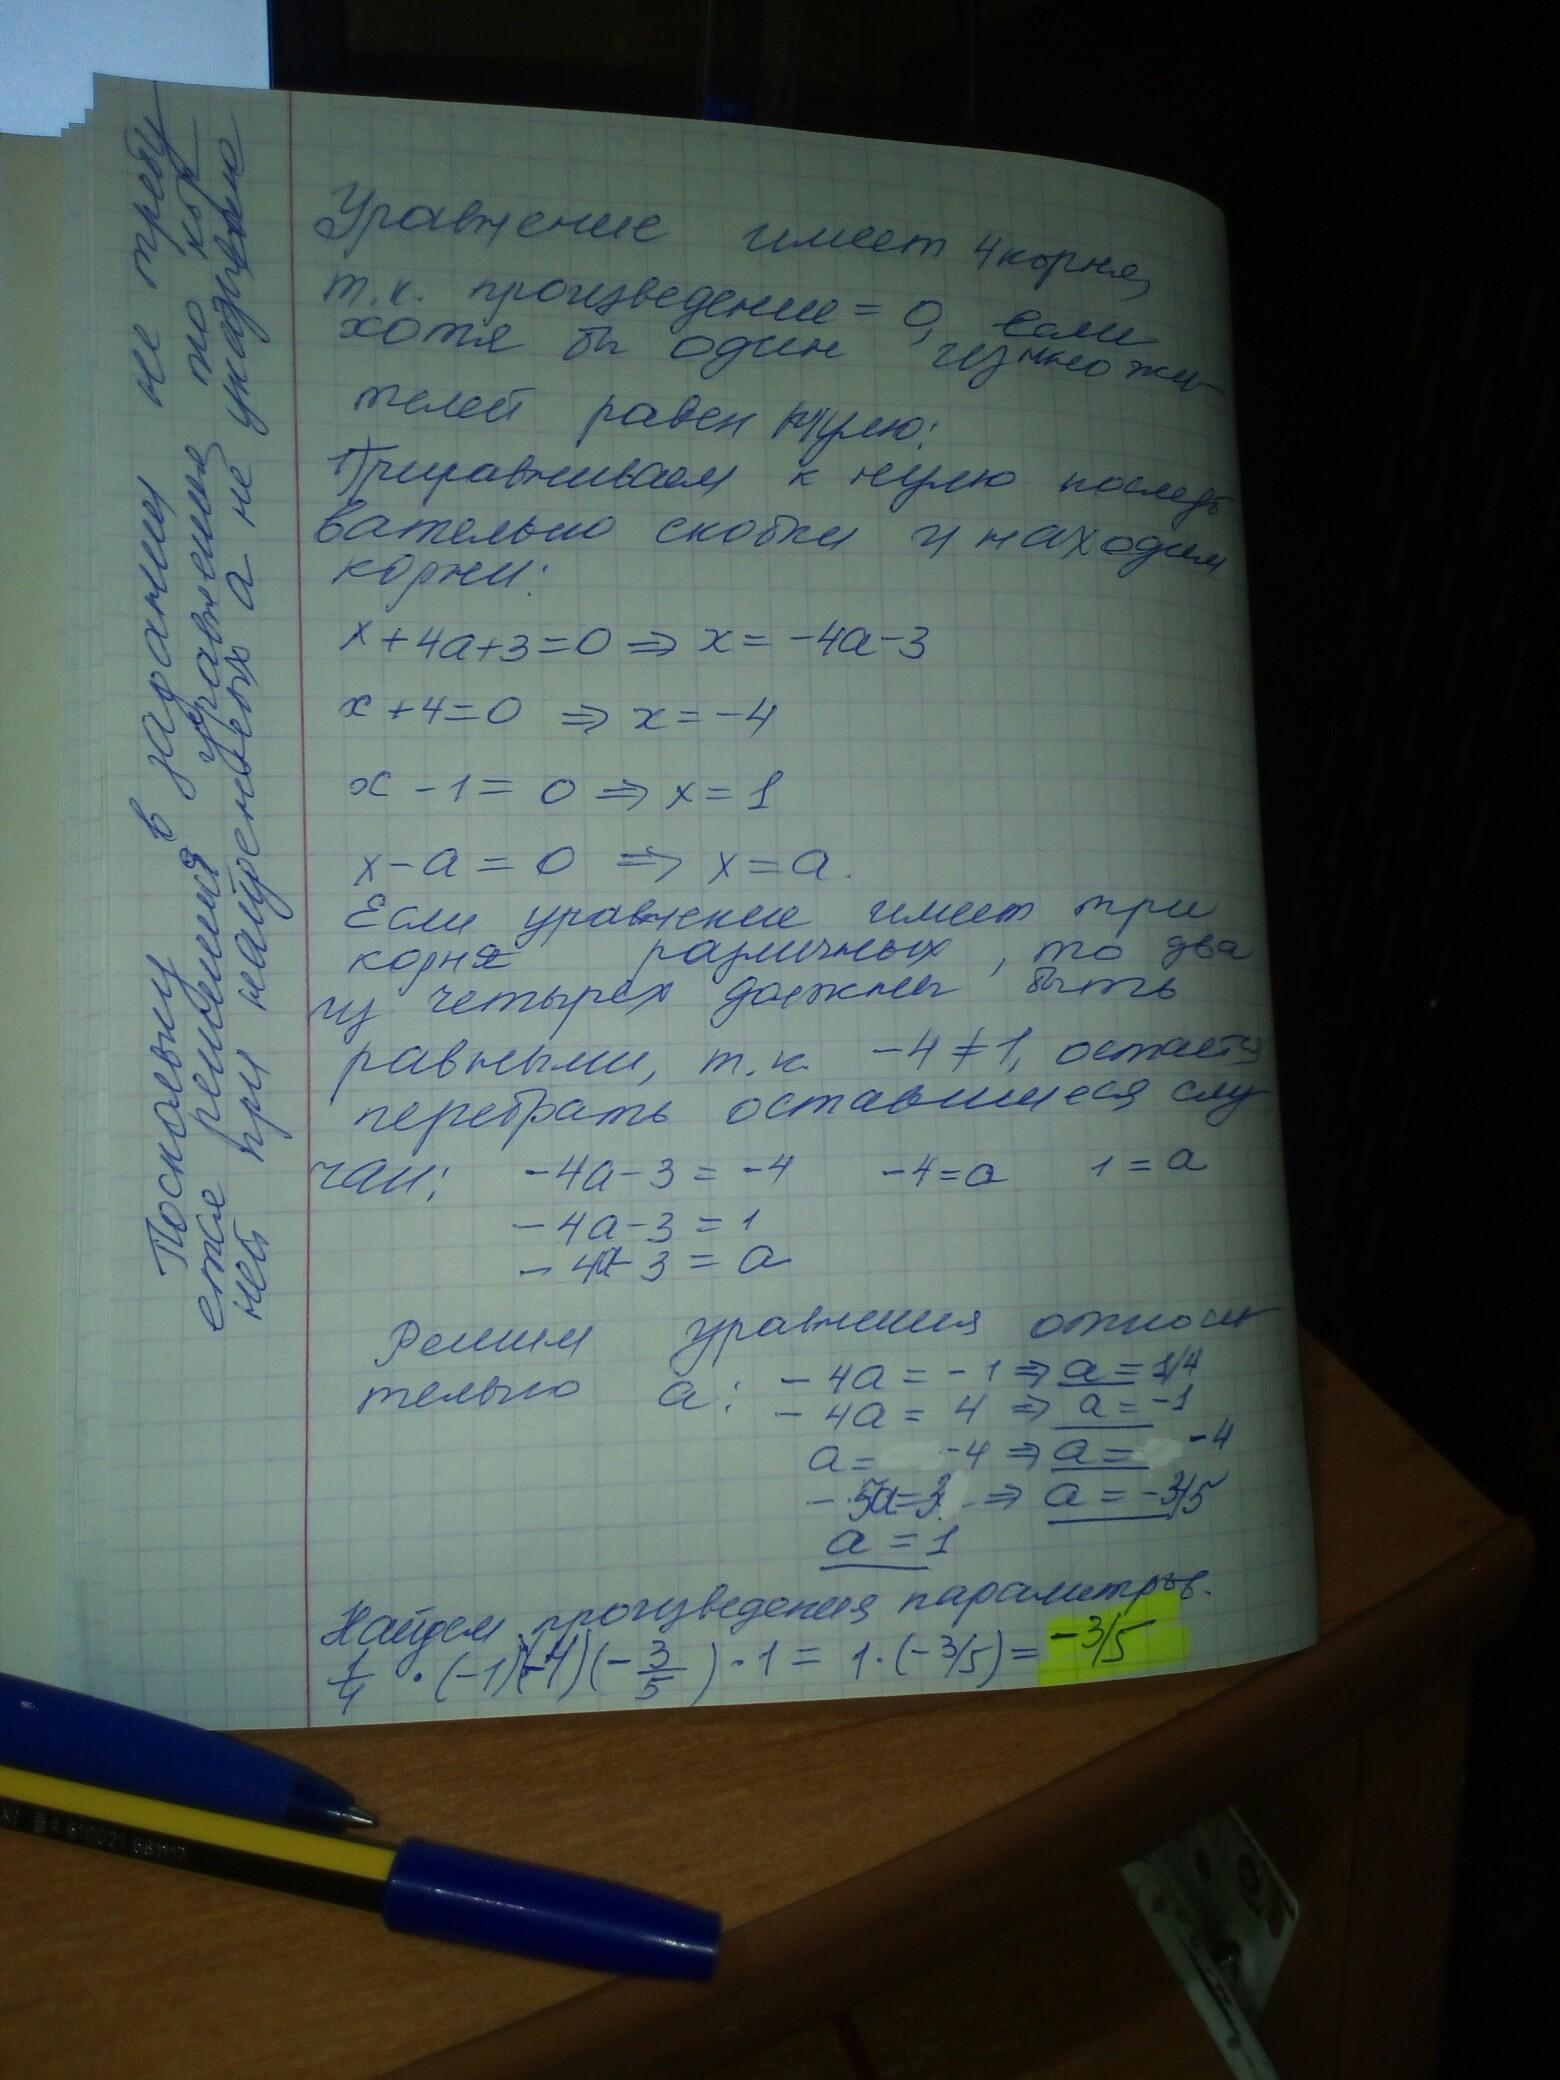 Уравнение имеет 4 корня,
т.к. произведение = 0, если
хотя бы один из множи-
телей равен нулю:
Приравниваем к нулю последо
вательно скобки и находим
корни:
x+4a+3=0 ⇒ x = -4a-3
x+4=0 ⇒ x = -4
x-1 = 0 ⇒ x = 1
x-a = 0 ⇒ x = a.
Если уравнение имеет три
корня различных, то два
из четырех должны быть
равными, т.к. -4 ≠ 1, остается
перебрать оставшиеся слу
чаи: -4a-3 = -4 -4=a 1=a
-4a-3 = 1
-4a-3 = a
Решим уравнения относи
тельно a: -4a = -1 ⇒ a = 1/4
-4a = 4 ⇒ a = -1
a = -4 ⇒ a = -4
-5a=3 ⇒ a = -3/5
a = 1
Найдем произведения параметров.
1/4 · (-1)(-4)(-3/5) · 1 = 1·(-3/5) = -3/5
Поскольку в задании не требу
ется решения уравнения, то кор
ней при найденных a не указываю
XI 4 610021 681117